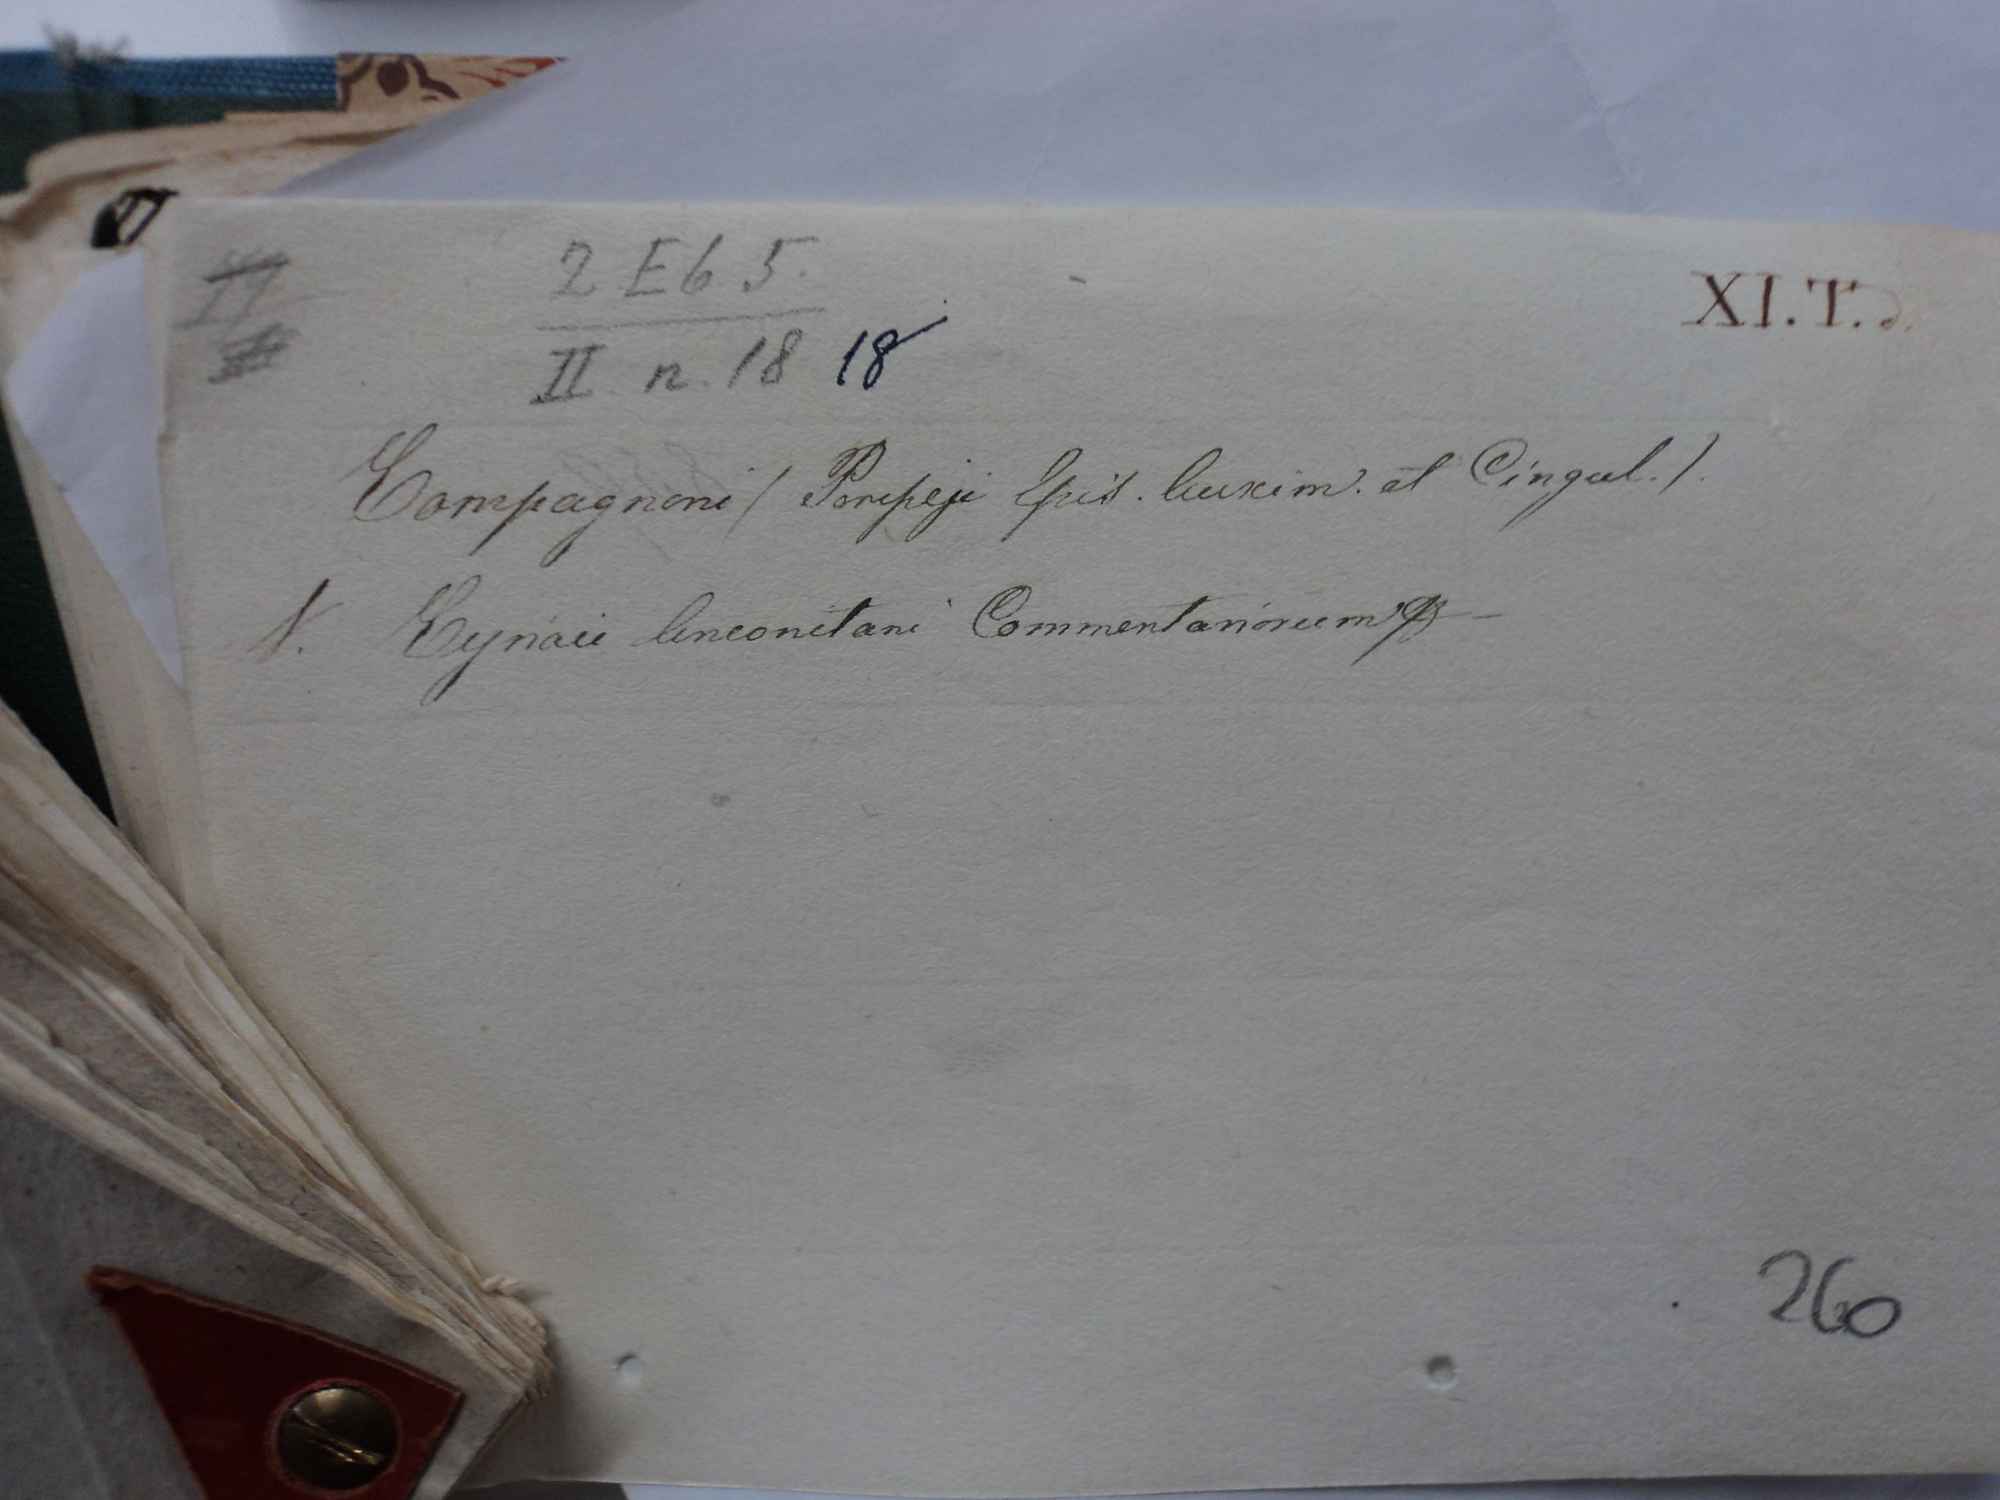 2 E 6 5.
XI. T.
II n. 18 18
Compagnoni (Pompeji Epis. Auxim. et Cingul.).
N. Cyriaci Anconitani Commentariorum
260